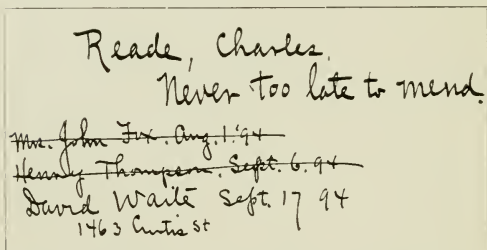 Reade, Charles.
Never too late to mend.
Mrs. John Fox. Aug. 1. '94
Henry Thompson. Sept. 6. 94
David Waite Sept. 17 94
1463 Curtis St